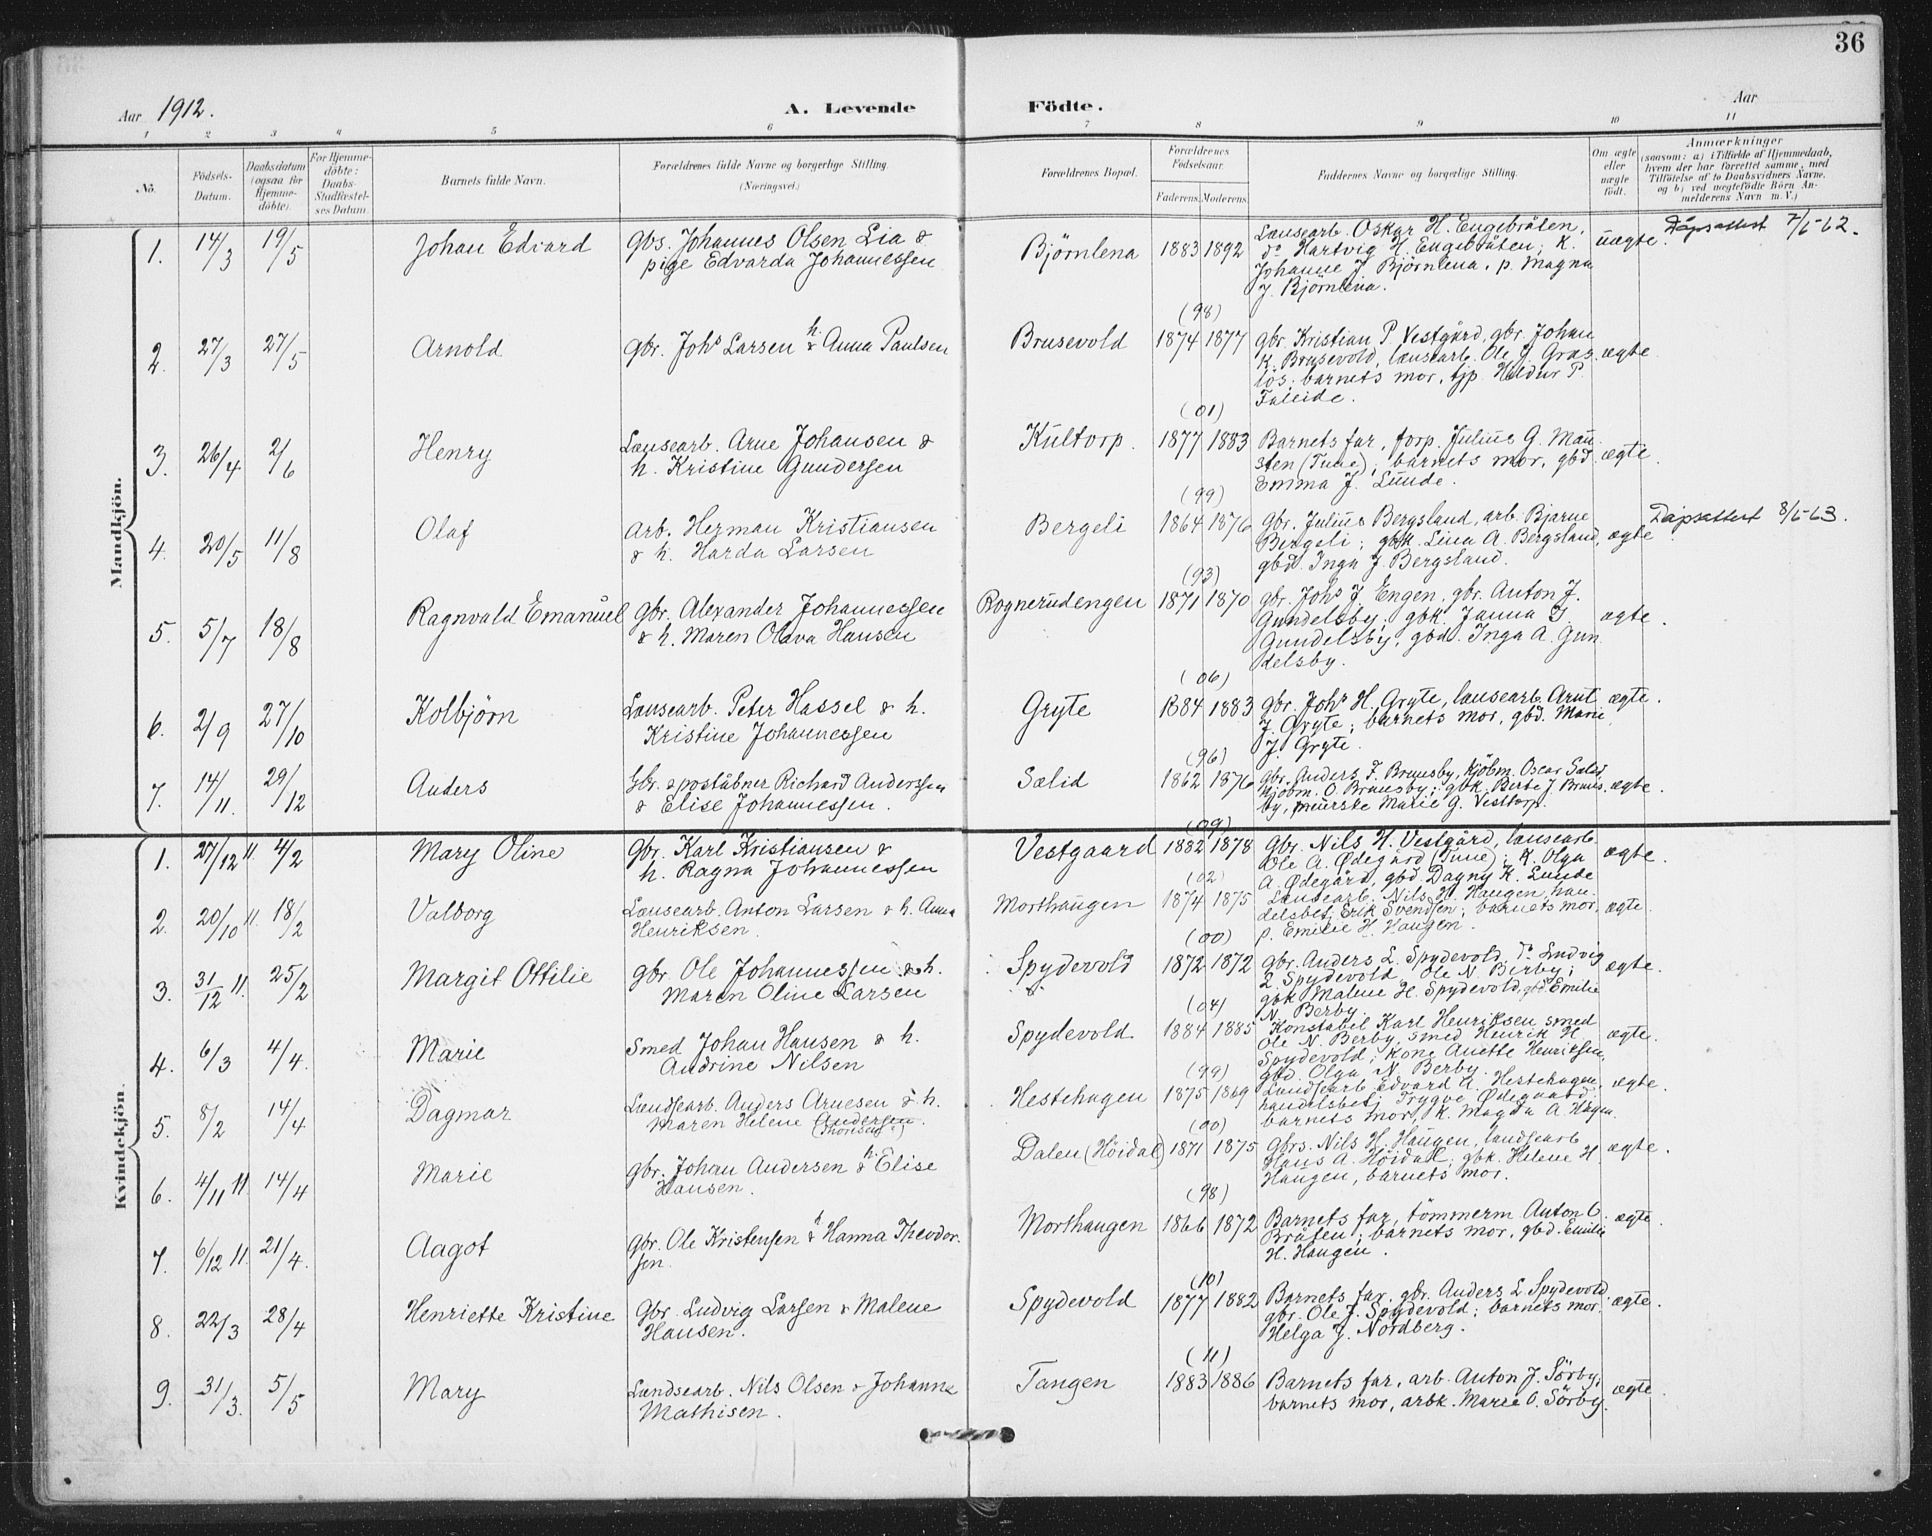 36
Aar 1912.
A. Levende Födte.
Aar
1 2 3 4 5 6 7 8 9 10 11
No.
Födsels-
Datum.
Daabsdatum
(ogsaa for
Hjemme-
döbte).
For Hjemme-
döbte:
Daabs-
Stadfæstel-
ses Datum.
Barnets fulde Navn.
Forældrenes fulde Navne og borgerlige Stilling.
(Næringsvei.)
Forældrenes Bopæl.
Forældrenes
Födselsaar.
Faderens.
Moderens.
Faddernes Navne og borgerlige Stilling.
Om ægte
eller
uægte
födt.
Anmærkninger
(saasom: a) i Tilfælde af Hjemmedaab,
hvem der har forrettet samme, med
Tilföielse af to Daabsvidners Navne,
og b) ved uægtefödte Börn An-
melderens Navn m. V.)
Mandkjön.
1. 14/3 19/5 Johan Edvard
Gbs. Johannes Olsen Lia &
pige Edvarda Johannessen
Björnlena 1883 1892
Lænsearb. Oskar H. Engebråten,
do Hartvig H. Engebråten; k.
Johanne J. Björnlena, p. Magna
J. Björnlena.
uægte.
Dåpsattest 7/6-62.
2. 27/3 27/5 Arnold
gbr. Johs Larsen & h. Anna Paulsen
Brusevold (98) 1874 1877
gbr. Kristian P. Vestgård, gbr. Johan
K. Brusevold, lænsearb. Ole J. Gras-
lös; barnets mor, tjp. Heldur P.
Faleide.
ægte
3. 26/4 2/6 Henry
Lænsearb. Arne Johansen &
h. Kristine Gundersen
Kultorp. (01) 1877 1883
Barnets far, forp. Julius G. Mau-
sten (Tune); barnets mor, gbd
Emma J. Lunde.
ægte
4. 20/5 11/8 Olaf
Arb. Herman Kristiansen
& h. Harda Larsen
Bergeli (99) 1864 1876
Gbr. Julius Bergsland, arb. Bjarne
Bergeli; gbk. Lina A. Bergsland,
gbd. Inga J. Bergsland.
ægte
Dåpsattest 8/6-63.
5. 5/7 18/8 Ragnvald Emanuel
Gbr. Alexander Johannessen
& h. Maren Olava Hansen
Rognerudengen (93) 1871 1870
gbr. Johs J. Engen, gbr. Anton J.
Gundelsby; gbk. Janna J.
Gundelsby, gbd. Inga A. Gun
delsby.
ægte.
6. 2/9 27/10 Kolbjörn
Lænsearb. Peter Hassel & h.
Kristine Johannessen
Gryte (06) 1884 1883
gbr. Johs H. Gryte, lænsearb. Arnt
J. Gryte; barnets mor, gbd. Marie
J. Gryte.
ægte.
7. 14/11. 29/12 Anders
Gbr. & poståbner Richard Anderssen
& Elise Johannessen.
Sælid (96) 1862 1876
gbr. Anders F. Brunsby, Kjöbm. Oscar Sælid,
Kjöbm. O. Brunsby; gbk. Berte J. Bruns-
by, meierske Marie G. Vesttorp.
ægte.
Kvindekjön.
1. 27/12 11. 4/2 Mary Oline
Gbr. Karl Kristiansen &
h. Ragna Johannessen
Vestgaard (09) 1882 1878
Gbr. Nils H. Vestgård, lænsearb.
Ole A. Ødegård (Tune); k. Olga
A. Ødegård, gbd. Dagny K. Lunde
ægte.
2. 20/10 11. 18/2 Valborg
Lænsearb. Anton Larsen & h. Anna
Henriksen.
Morthaugen (02) 1874 1875
Lænsearb. Nils H. Haugen, han-
delsbet. Erik Svendsen; barnets mor,
p. Emilie H. Haugen.
ægte
3. 31/12 11. 25/2 Margit Ottilie
gbr. Ole Johannessen & h.
Maren Oline Larsen
Spydevold (00) 1872 1872
gbr. Anders L. Spydevold, do Ludvig
L. Spydevold Ole N. Berby;
gbk Malene H. Spydevold, gbd Emilie
N. Berby
ægte.
4. 6/3 4/4. Marie
Smed Johan Hansen & h.
Andrine Nilsen
Spydevold (04) 1884 1885
Konstabel Karl Henriksen smed
Ole N. Berby, smed Henrik H.
Spydevold; Kone Anette Henriksen,
gbd Olga N. Berby.
ægte.
5. 8/2 14/4 Dagmar
Lændsearb. Anders Arnesen & h.
Maren Helene Andersen.
(Thoresen)
Hestehagen (99) 1875 1869
Lændsearb. Edvard A. Hestehagen,
handelsbetj. Trygve Ødegaard;
barnets mor, k. Magda A. Hagen
ægte.
6. 4/11 11 14/4 Marie
gbr. Johan Andersen & h. Elise
Hansen.
Dalen (Höidal) (00) 1871 1875
Gbrs. Nils H. Haugen, lændsearb
Hans A. Höidal; gbk. Helene H
Haugen, barnets mor.
ægte.
7. 6/12 11. 21/4. Aagot
Gbr. Ole Kristensen & h Hanna Theodor-
sen.
Morthaugen (98) 1866 1872
Barnets far, tömmerm. Anton O.
Bråten; barnets mor, gbd. Emilie
H. Haugen.
ægte.
8. 22/3 28/4 Henriette Kristine
Gbr. Ludvig Larsen & Malene
Hansen.
Spydevold (10) 1877 1882
Barnets far, gbr. Anders L. Spydevold
gbr. Ole J. Spydevold; barnets mor,
Helga J. Nordberg.
ægte.
9. 31/3. 5/5 Mary
Lændsearb. Nils Olsen & Johanne
Mathisen.
Tangen (11) 1883 1886
Barnets far, arb. Anton J. Sörby,
barnets mor, arbk. Marie O. Sörby.
ægte.